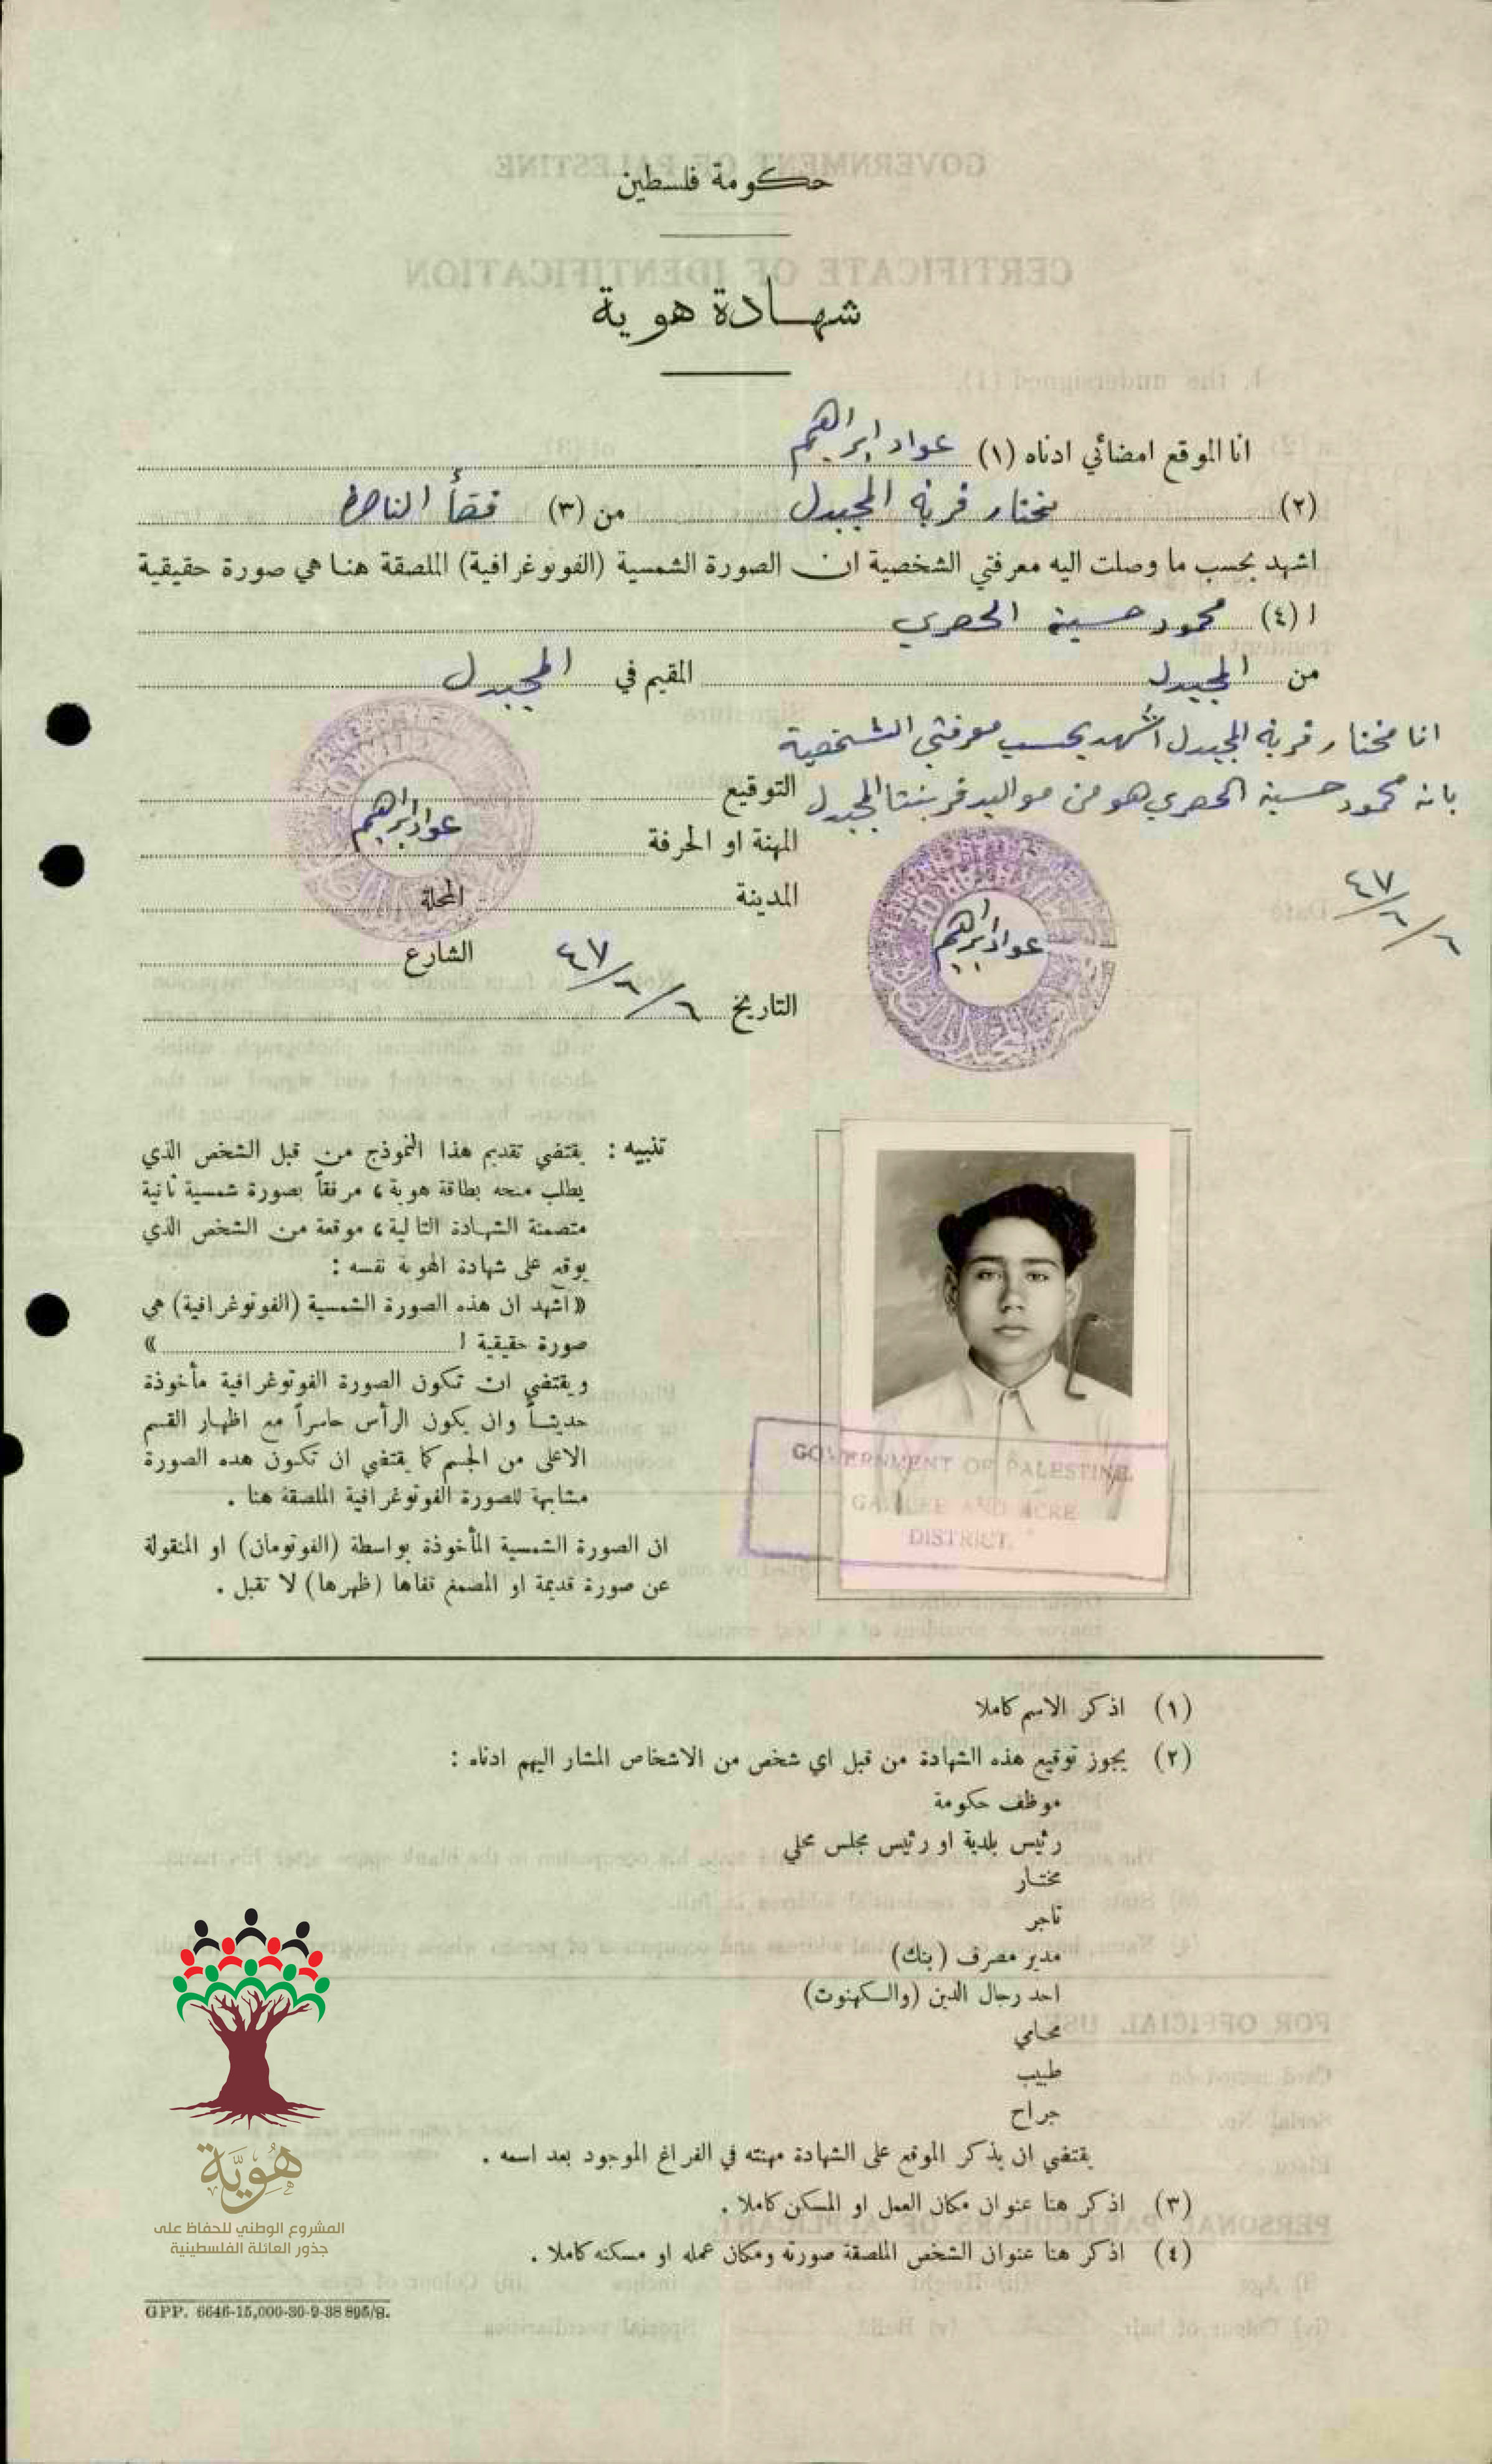 حكومة فلسطين
شهادة هوية
انا الموقع امضائي ادناه (١) عواد ابراهيم
(٢) مختار قرية المجيدل من (٣) قضأ الناصرة
اشهد بحسب ما وصلت اليه معرفتي الشخصية ان الصورة الشمسية (الفوتوغرافية) الملصقة هنا هي صورة حقيقية
ا (٤) محمود حسين الحصري
من المجيدل المقيم في المجيدل
انا مختار قرية المجيدل أشهد بحسب معرفتي الشخصية
بانه محمود حسين الحصري هو من مواليد قريتنا المجيدل
٤٧/٦/٦
عواد ابراهيم
التوقيع
عواد ابراهيم
المهنة او الحرفة
المدينة المحلة
الشارع
التاريخ ٤٧/٦/٦
تنبيه : يقتضي تقديم هذا النموذج من قبل الشخص الذي
يطلب منحه بطاقة هوية ، مرفقاً بصورة شمسية ثانية
متضمنة الشهادة التالية ، موقعة من الشخص الذي
يوقع على شهادة الهوية نفسه :
« اشهد ان هذه الصورة الشمسية (الفوتوغرافية) هي
صورة حقيقية ا »
ويقتضي ان تكون الصورة الفوتوغرافية مأخوذة
حديثاً وان يكون الرأس حاسراً مع اظهار القسم
الاعلى من الجسم كما يقتضي ان تكون هذه الصورة
مشابهة للصورة الفوتوغرافية الملصقة هنا .
ان الصورة الشمسية المأخوذة بواسطة (الفوتومان) او المنقولة
عن صورة قديمة او المصمغ قفاها (ظهرها) لا تقبل .
GOVERNMENT OF PALESTINE
GALILEE AND ACRE
DISTRICT.
(١) اذكر الاسم كاملا
(٢) يجوز توقيع هذه الشهادة من قبل اي شخص من الاشخاص المشار اليهم ادناه :
موظف حكومة
رئيس بلدية او رئيس مجلس محلي
مختار
تاجر
مدير مصرف (بنك)
احد رجال الدين (والكهنوت)
محامي
طبيب
جراح
يقتضي ان يذكر الموقع على الشهادة مهنته في الفراغ الموجود بعد اسمه .
(٣) اذكر هنا عنوان مكان العمل او المسكن كاملا .
(٤) اذكر هنا عنوان الشخص الملصقة صورته ومكان عمله او مسكنه كاملا .
هُوِيَّة
المشروع الوطني للحفاظ على
جذور العائلة الفلسطينية
GPP. 6646-15,000-30-9-38 895/S.